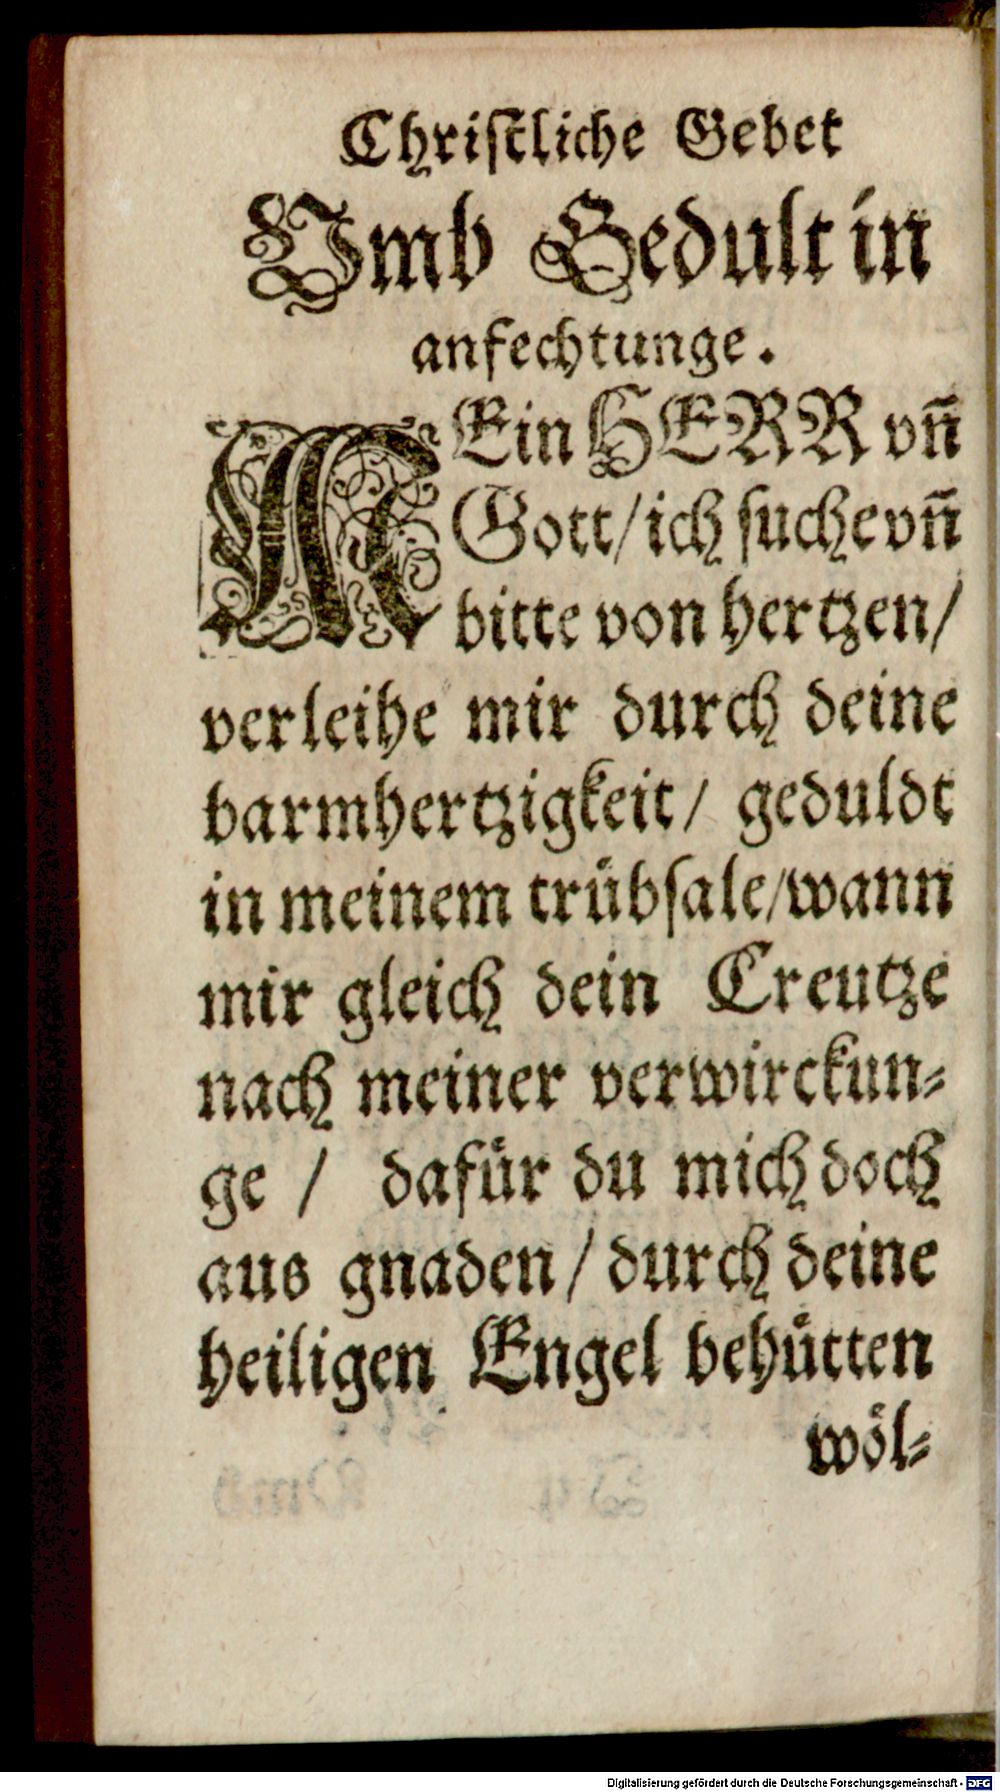 Christliche Gebet
Vmb Gedult in
anfechtunge.
MEin HERR vñ
Gott/ich suche vñ
bitte von hertzen/
verleihe mir durch deine
barmhertzigkeit/ geduldt
in meinem trübsale/wann
mir gleich dein Creutze
nach meiner verwirckun⸗
ge / dafür du mich doch
aus gnaden/durch deine
heiligen Engel behütten
wöl⸗
Digitalisierung gefördert durch die Deutsche Forschungsgemeinschaft - DFG